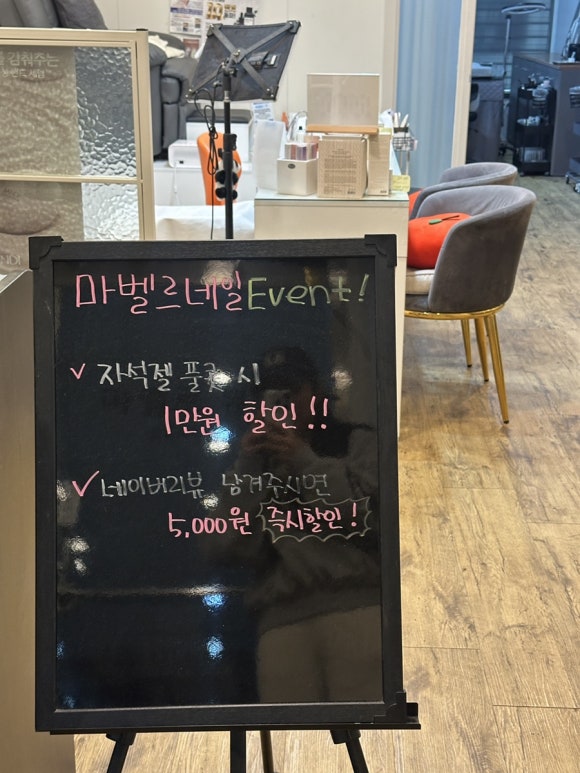 마벨르네일 Event!
✓ 자석젤 풀콧 시
1만원 할인!!
✓ 네이버리뷰 남겨주시면
5,000원 즉시할인!